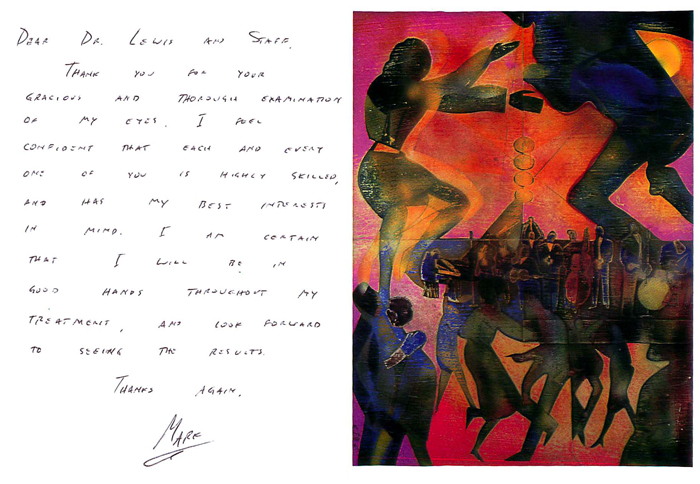 DEAR DR. LEWIS AND STAFF,
THANK YOU FOR YOUR
GRACIOUS AND THOROUGH EXAMINATION
OF MY EYES. I FEEL
CONFIDENT THAT EACH AND EVERY
ONE OF YOU IS HIGHLY SKILLED,
AND HAS MY BEST INTERESTS
IN MIND. I AM CERTAIN
THAT I WILL BE IN
GOOD HANDS THROUGHOUT MY
TREATMENT, AND LOOK FORWARD
TO SEEING THE RESULTS.
THANKS AGAIN,
MARK